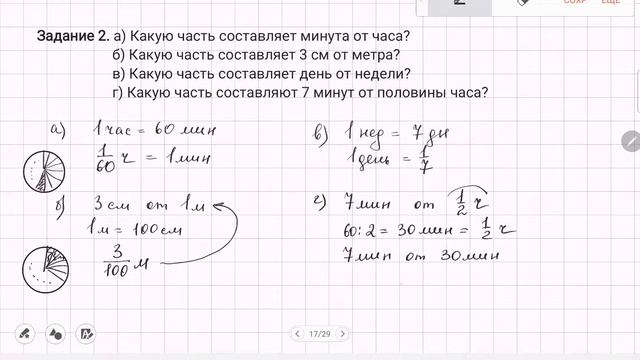 СОХР
ЕЩЕ
Задание 2. а) Какую часть составляет минута от часа?
б) Какую часть составляет 3 см от метра?
в) Какую часть составляет день от недели?
г) Какую часть составляют 7 минут от половины часа?
а) 1 час = 60 мин
1/60 ч = 1 мин
б) 3 см от 1 м
1 м = 100 см
3/100 м
в) 1 нед = 7 дн
1 день = 1/7
г) 7 мин от 1/2 ч
60 : 2 = 30 мин = 1/2 ч
7 мин от 30 мин
17/29